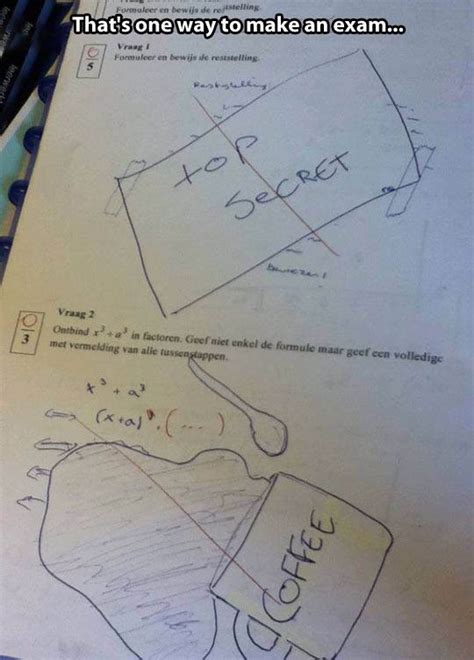 Formuleer en bewijs de reststelling.
That's one way to make an exam...
Vraag 1
0
5
Formuleer en bewijs de reststelling.
Reststelling
TOP
SECRET
Vraag 2
0
3
Ontbind x³+a³ in factoren. Geef niet enkel de formule maar geef een volledige
met vermelding van alle tussenstappen.
x³ + a³
(x+a) . (...)
COFFEE